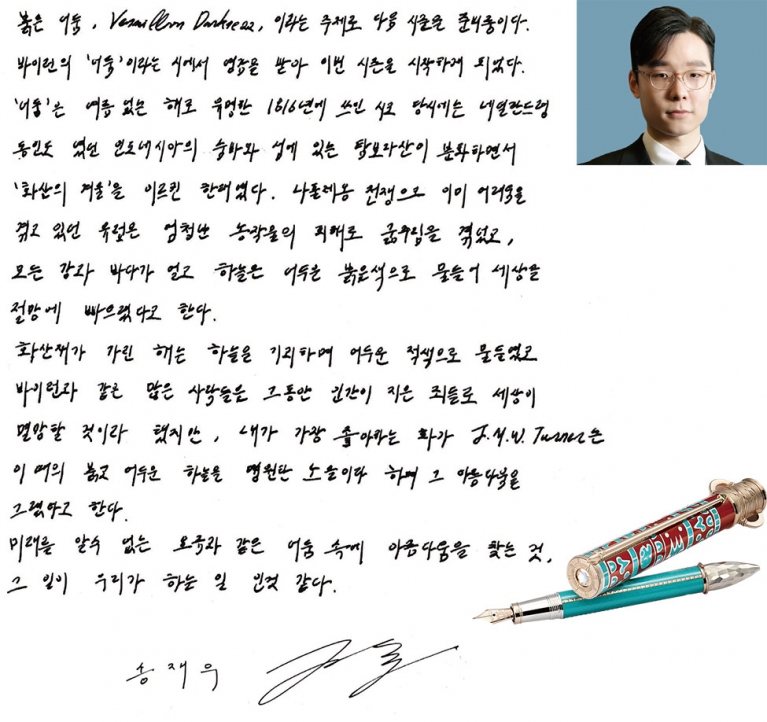 붉은 어둠, Vermillion Darkness, 이라는 주제로 다음 시즌을 준비중이다.
바이런의 '어둠'이라는 시에서 영감을 받아 이번 시즌을 시작하게 되었다.
'어둠'은 여름 없는 해로 유명한 1816년에 쓰인 시로 당시에는 네덜란드령
동인도 였던 인도네시아의 숨바와 섬에 있는 탐보라산이 분화하면서
'화산의 겨울'을 이르킨 한해였다. 나폴레옹 전쟁으로 이미 어려움을
겪고 있던 유럽은 엄청난 농작물의 피해로 굶주림을 겪었고,
모든 강과 바다가 얼고 하늘은 어두운 붉은색으로 물들어 세상을
절망에 빠뜨렸다고 한다.
화산재가 가린 해는 하늘을 기괴하며 어두운 적색으로 물들였고
바이런과 같은 많은 사람들은 그동안 인간이 지은 죄들로 세상이
멸망할 것이라 했지만, 내가 가장 좋아하는 화가 J.M.W. Turner는
이 때의 붉고 어두운 하늘을 영원한 노을이라 하며 그 아름다움을
그렸다고 한다.
미래를 알수 없는 요즘과 같은 어둠 속에 아름다움을 찾는 것,
그 일이 우리가 하는 일 인것 같다.
송재우